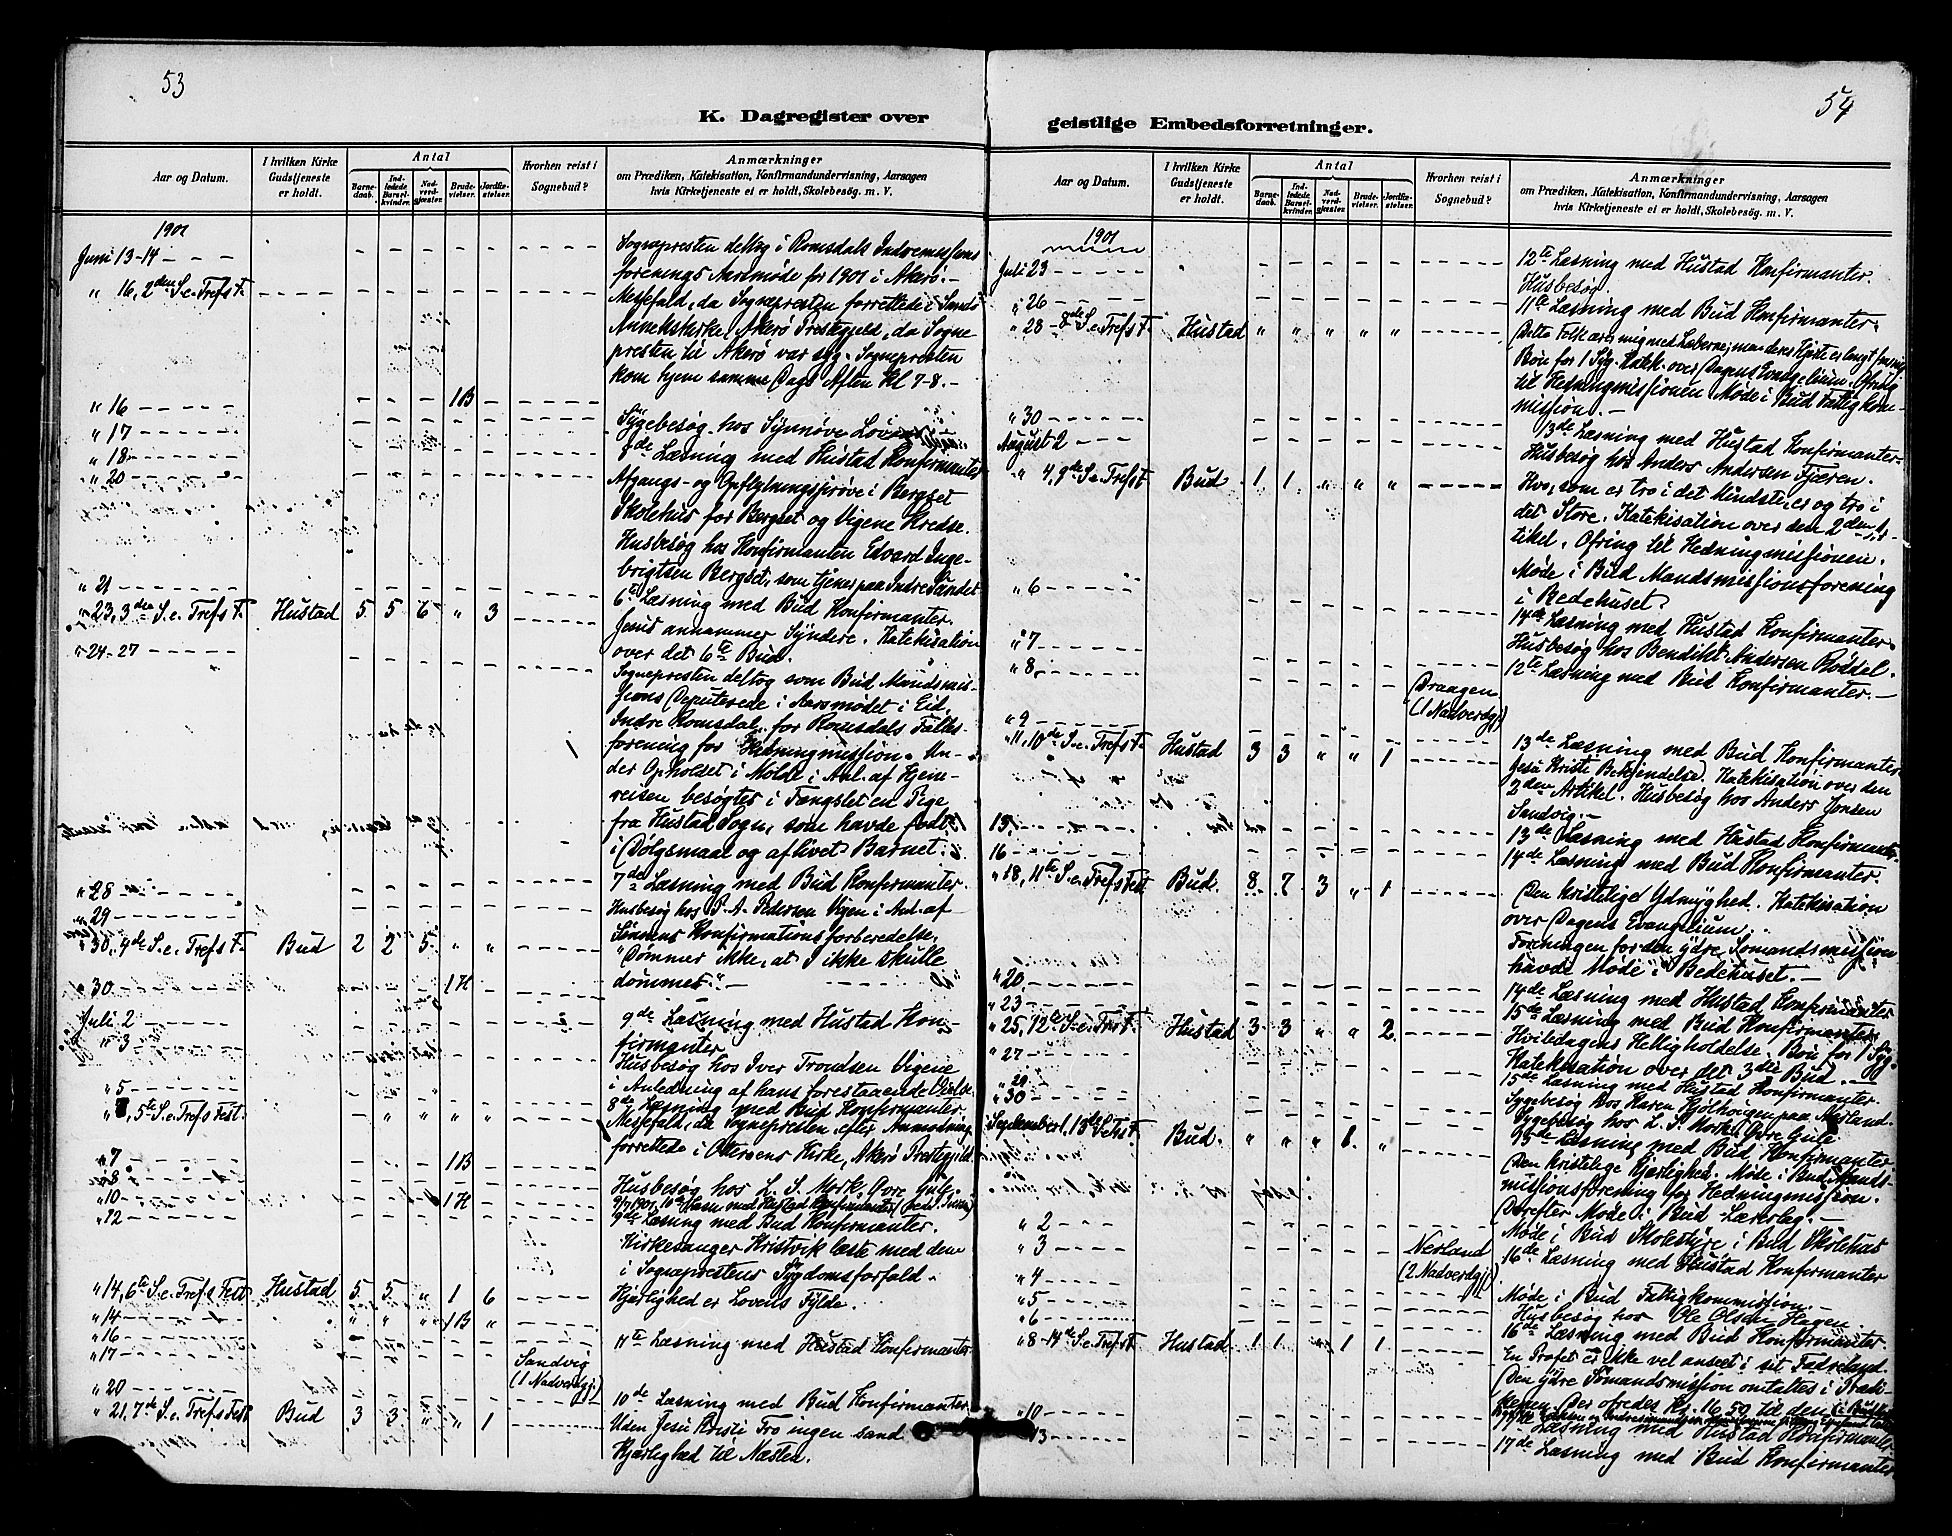 53
K. Dagregister over
Aar og Datum.
I hvilken Kirke Gudstjeneste er holdt.
Antal
Barnedaab.
Indledede Barselkvinder.
Nadverdgjæster.
Brudevielser.
Jordfæstelser.
Hvorhen reist i Sognebud?
Anmærkninger
om Prædiken, Katekisation, Konfirmandundervisning, Aarsagen
hvis Kirketjeneste ei er holdt, Skolebesøg. m. V.
1901
Juni 13-14
Sognepresten deltog i Romsdals Indremissions
forenings Aarsmøde for 1901 i Akerø.-
" 16, 2den S. e. Tref. F.
Messefald, da Sognepresten forrettede i Sands
Annekskirke, Akerø Prestgjeld, da Sogne
presten til Akerø var syg. Sognepresten
kom hjem samme Dags Aften Kl 7-8.-
" 16 1B
" 17 Sygebesøg hos Synnøve
" 18 8de Læsning med Hustad Konfirmanter
" 20 Afgangs- og Opflytningsprøve i Bergset
Skolehus for Bergset og Vigene Kredse.
Husbesøg hos Konfirmanten Edvard Inge-
brigtsen Bergset, som tjener paa Indre Sandet
" 21 6te Læsning med Bud Konfirmanter.
" 23, 3die S. e. Tref. F. Hustad 5 5 6 " 3 Jesus annammer Syndere. Katekisation
over det 6te Bud.
" 24-27
Sognepresten deltog som Bud Mandsmis-
sions Deputerede i Aarsmødet i Eid,
Indre Romsdal, for Romsdals Fælles-
forening for Hedningmission. Un-
der Opholdet i Molde i Anl. af Hjem-
reisen besøgtes i Fængslet en Pige
fra Hustad Sogn, som havde født
i Dølgsmaal og aflivet Barnet.
" 28 7de Læsning med Bud Konfirmanter.
" 29 Husbesøg hos P. A. Pedersen Vigen i Anl. af
Sønnens Konfirmationsforberedelse.
" 30, 4de S. e. Tref. F. Bud 2 2 5 " " "Dømmer ikke, at I ikke skulle
dømmes."
" 30 1H
Juli 2 9de Læsning med Hustad Kon-
firmanter
" 3 Husbesøg hos Iver Trondsen Vigene
i Anledning af hans forestaaende Vielse
" 5 8de Læsning med Bud Konfirmanter.
" 7, 5te S. e. Tref. Fest. " " " " Messefald, da Sognepresten efter Anmodning
forrettede i Otterøens Kirke, Akerø Prestegjeld.
" 7 1B
" 8 Husbesøg hos L. S. Mork Øvre Gule.
" 10 1H
" 12 9de Læsning med Bud Konfirmanter.
Kirkesanger Kristvik læste med dem
i Sognepresten's Sygdomsforfald.
" 14, 6te S. e. Tref. Fest Hustad 5 5 " 1 6 Kjærlighed er Lovens Fylde.
" 14 " " " 1B "
" 16 11te Læsning med Hustad Konfirmanter.
" 17 Sandvig
(1 Nadverdgj.)
" 20 10de Læsning med Bud Konfirmanter
" 21, 7de S. e. Tref. Fest Bud 3 3 " " 1 Uden Jesu Kristi Tro ingen sand
Kjærlighed til Næsten.
54
geistlige Embedsforretninger.
Aar og Datum.
I hvilken Kirke Gudstjeneste er holdt.
Antal
Barnedaab.
Indledede Barselkvinder.
Nadverdgjæster.
Brudevielser.
Jordfæstelser.
Hvorhen reist i Sognebud?
Anmærkninger
om Prædiken, Katekisation, Konfirmandundervisning, Aarsagen
hvis Kirketjeneste ei er holdt, Skolebesøg. m. V.
1901
Juli 23 12te Læsning med Hustad Konfirmanter.
Husbesøg.
" 26 11te Læsning med Bud Konfirmanter.
" 28 - 8de S. e. Tref. F. Hustad " " " " " Dette Folk ærer mig med Læberne; men deres Hjerte er langt fra mig
Bøn for 1 Syg. Katek. over Dagens Evangelium. Ofring
til Hedningmissionen Møde i Bud Fattigkom-
mission.-
" 30 13de Læsning med Hustad Konfirmanter-
August 2 Husbesøg hos Anders Andersen Tjæren.
" 4, 9de S. e. Tref. F. Bud 1 1 " " " Hvo, som er tro i det Mindste, er og tro i
det Store. Katekisation over den 2den Ar-
tikel. Ofring til Hedningmissionen.
Møde i Bud Mandsmissionsforening
i Bedehuset.
" 6 14de Læsning med Hustad Konfirmanter.
" 7 Husbesøg hos Bendikt Andersen Rødsel.
" 8 12te Læsning med Bud Konfirmanter.-
Draagen
(1 Nadverdgj)
" 9 13de Læsning med Bud Konfirmanter
" 11, 10de S. e. Tref. F. Hustad 3 3 " " 1 Jesu Kristi Bekjendelse. Katekisation over den
2den Artikel. Husbesøg hos Anders Jonsen
Sandvig.-
13. 13de Læsning med Hustad Konfirmanter.
16 14de Læsning med Bud Konfirmanter.
" 18, 11te S. e. Tref. Fest Bud. 8 7 3 " 1 Den kristelige Ydmyghed. Katekisation
over Dagens Evangelium.
Foreningen for den ydre Sømandsmission
havde Møde i Bedehuset.-
" 20 14de Læsning med Hustad Konfirmanter
" 23 15de Læsning med Bud Konfirmanter
" 25, 12te S. e. Tref. F. Hustad 3 3 " " 2 Hviledagens Helligholdelse. Bøn for 1 Syg.
Katekisation over det 3die Bud.-
" 27 15de Læsning med Hustad Konfirmanter.
" 29 Sygebesøg hos Karen paa Nerland.
" 30 Sygebesøg hos L. S. Mork Øvre Gule
Læsning med Bud Konfirmanter.
September 1, 13de S. e. Tref. F. Bud. " " " 1. " Den kristelige Kjærlighed. Møde i Bud Mands-
missionsforening for Hedningmission.
Derefter Møde i Bud Læselag.-
" 2 Møde i Bud Skolestyre i Bud Skolehus
" 3 Nerland
(2 Nadverdgj) 16de Læsning med Hustad Konfirmanter
" 4
" 5 Møde i Bud Fattigkommission.-
" 6 Husbesøg hos Ole Olsen Hagen.
16de Læsning med Bud Konfirmanter.
" 8 - 14de S. e. Tref. F. Hustad 1 1 " 1 1 En Profet er ikke vel anseet i sit Fædreland.
Den ydre Sømandsmission omtaltes i Prædi-
kenen. Der ofredes Kr. 16,50 til den
" 10 Læsning med Hustad Konfirmanter.
" 13 17de Læsning med Bud Konfirmanter